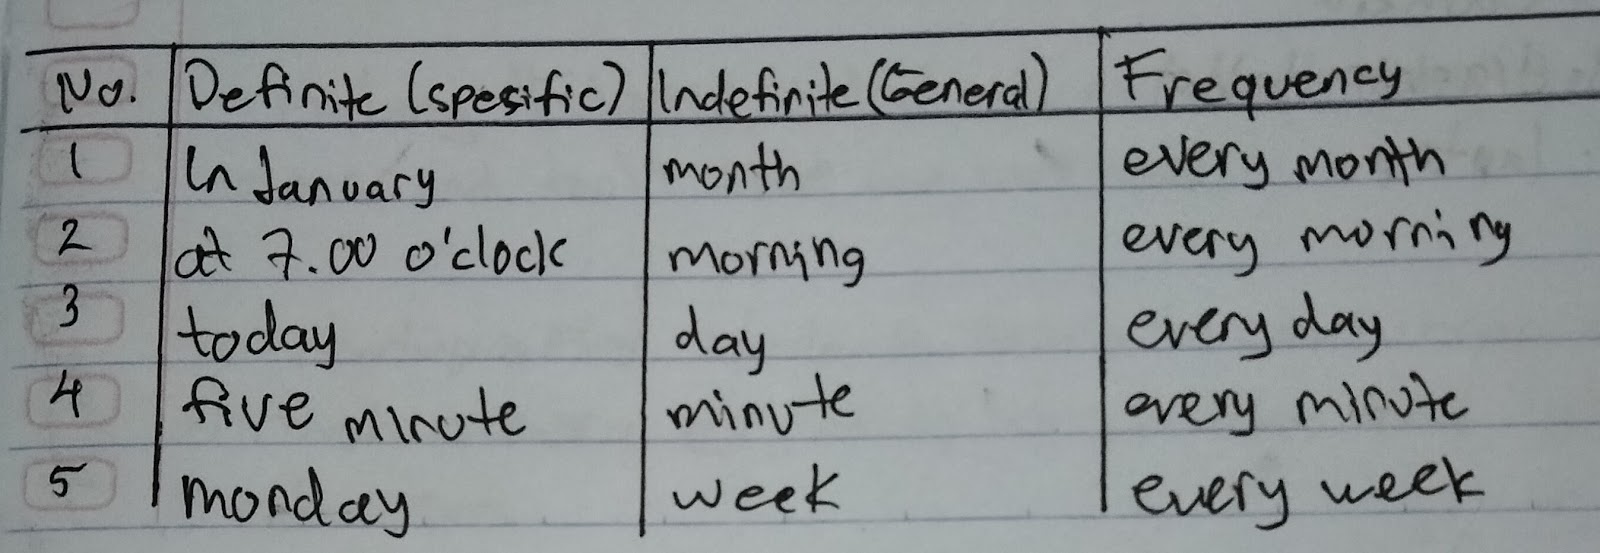 No. Definite (spesific) Indefinite (General) Frequency
1 In January month every month
2 at 7.00 o'clock morning every morning
3 today day every day
4 five minute minute every minute
5 monday week every week